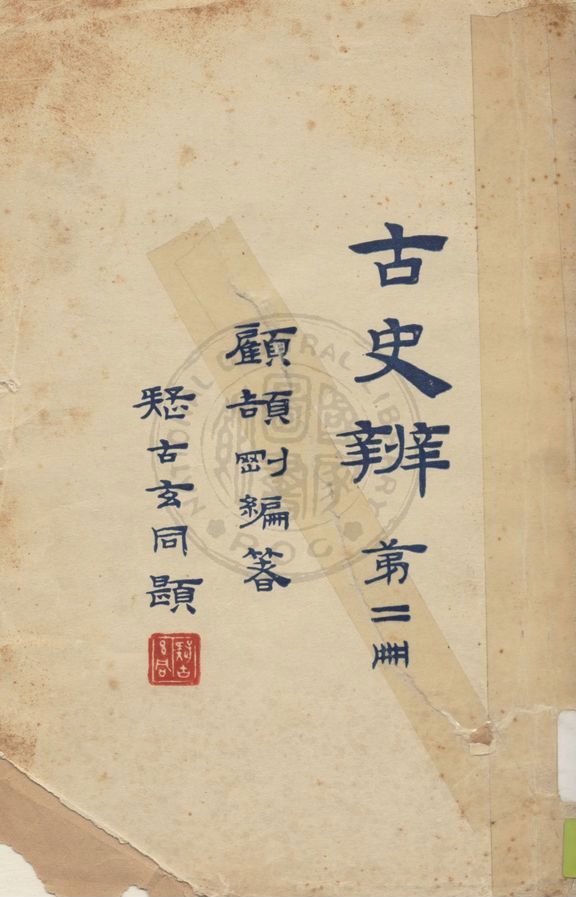 古史辨 第二冊
顧頡剛編著
疑古玄同題
疑古
NATIONAL CENTRAL LIBRARY
ROC